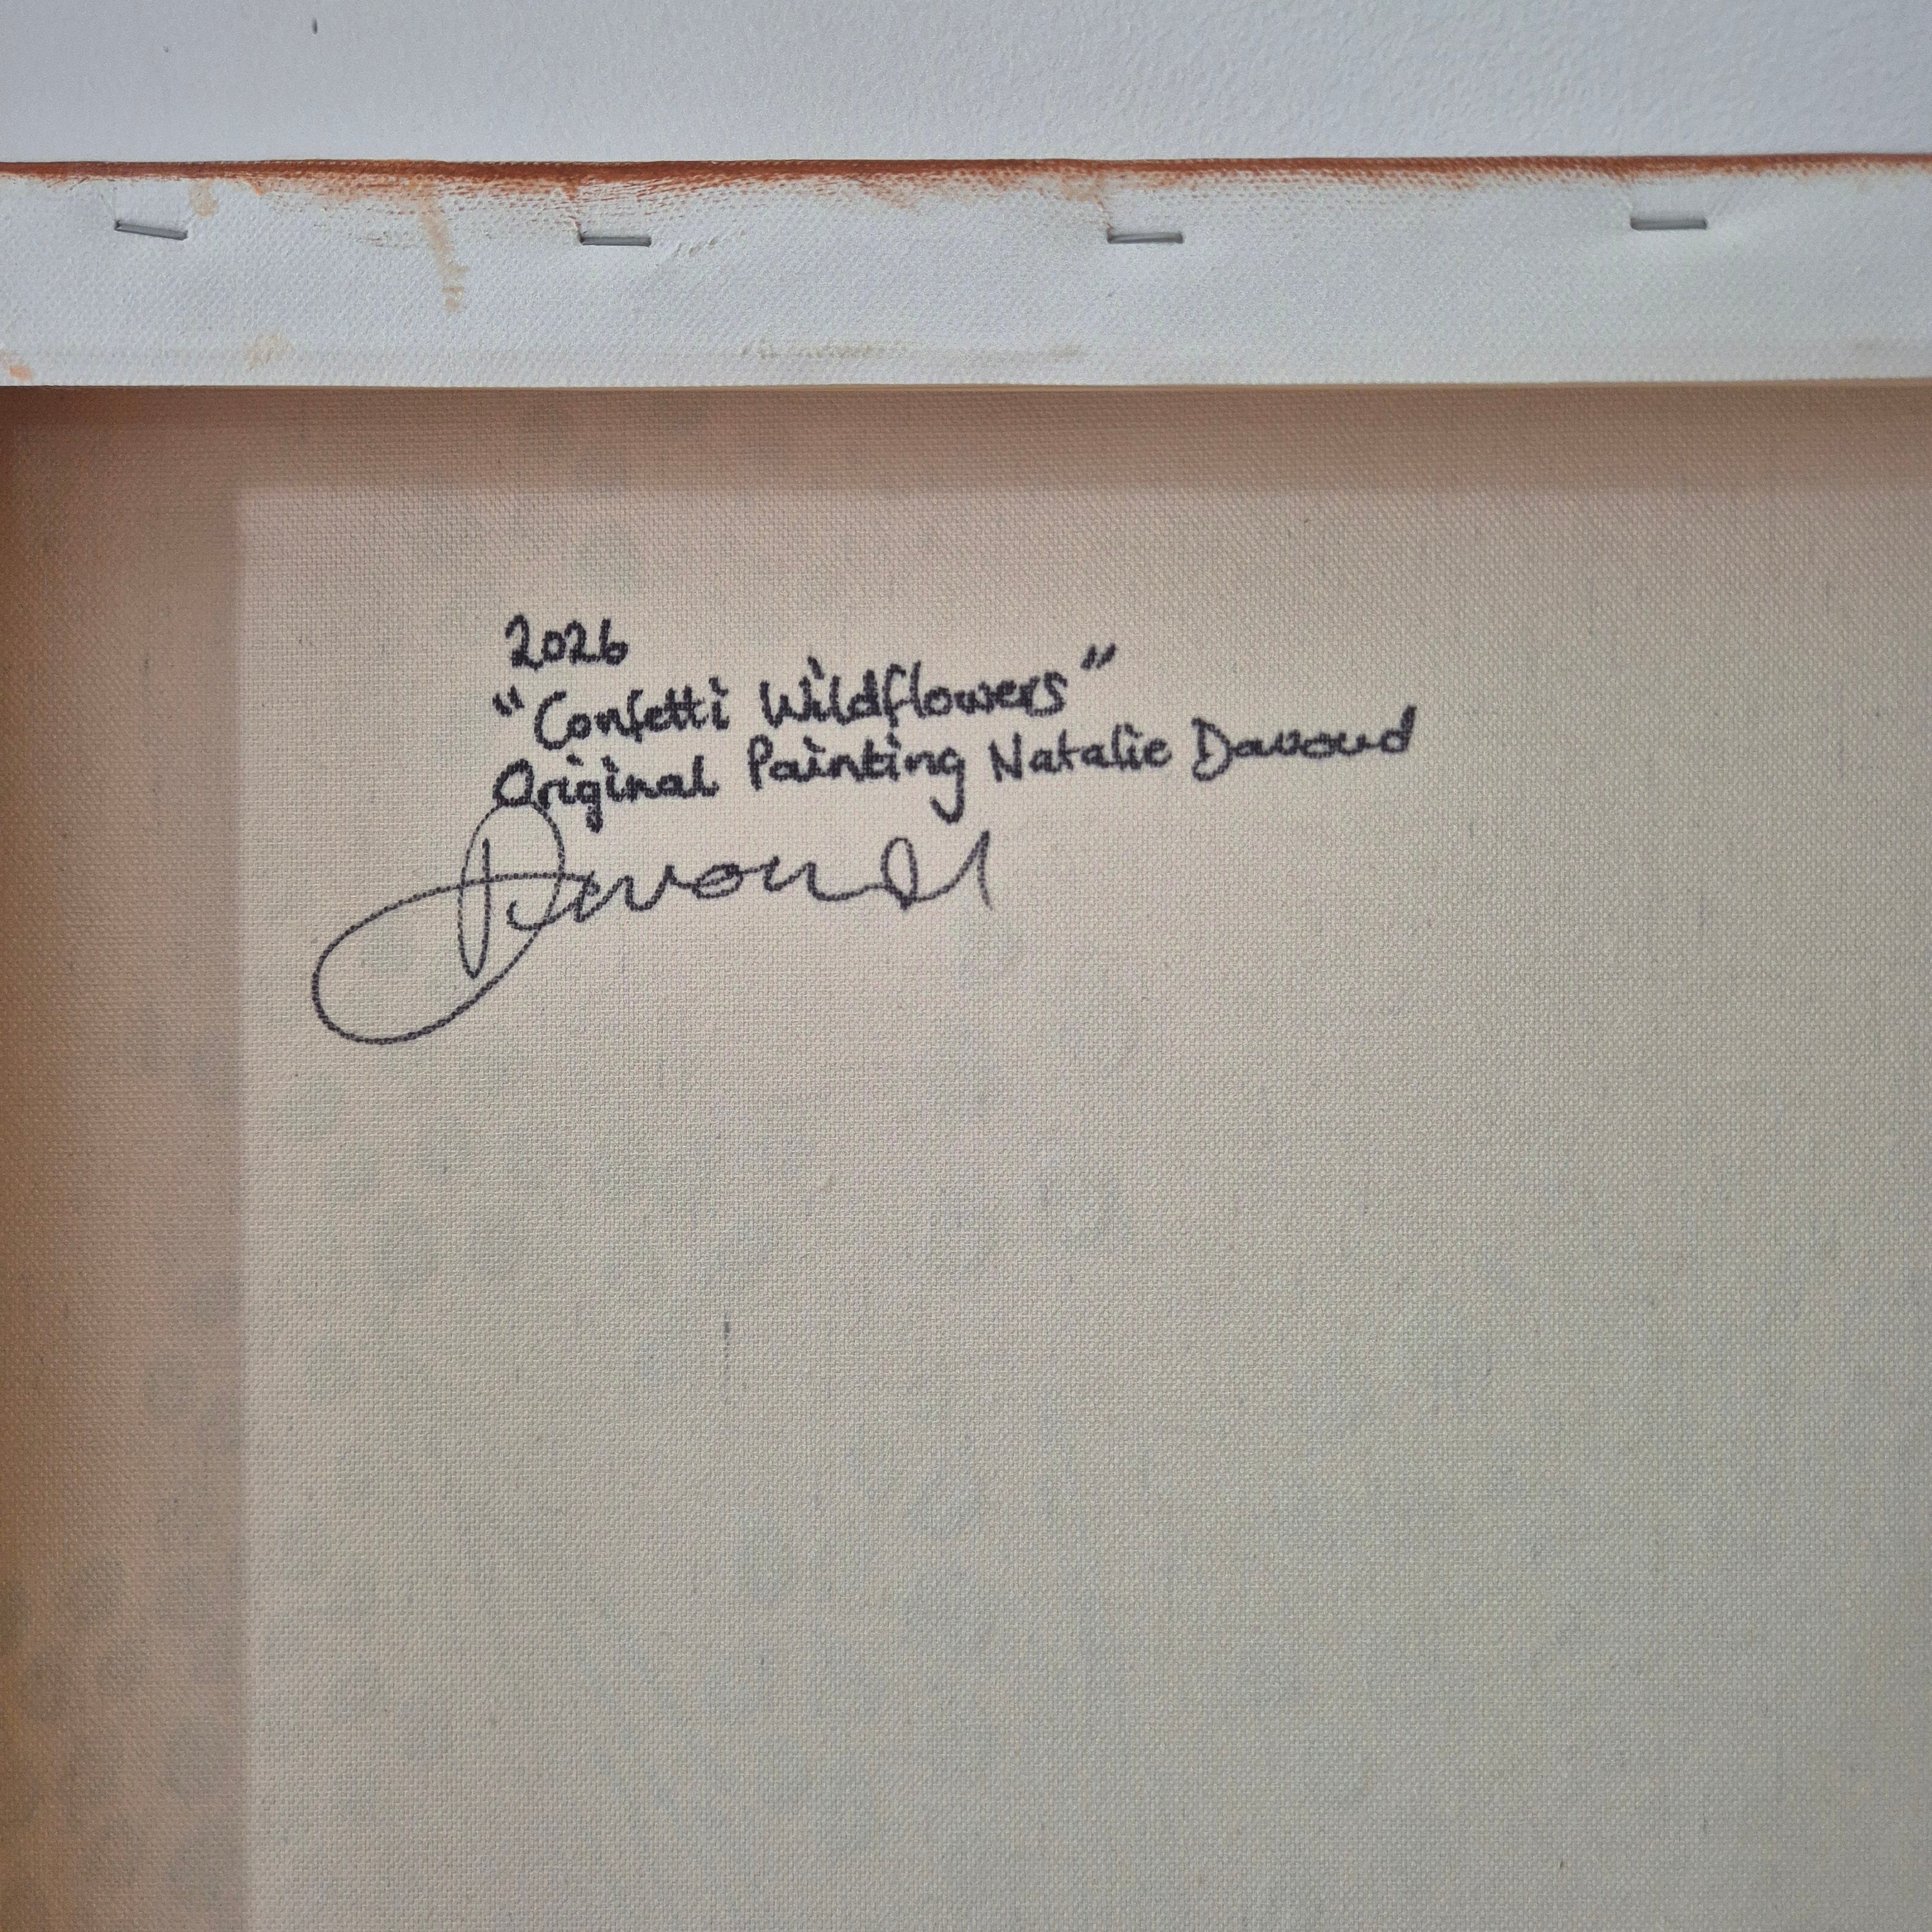 2026
"Confetti Wildflowers"
Original Painting Natalie Davoud
Davoud